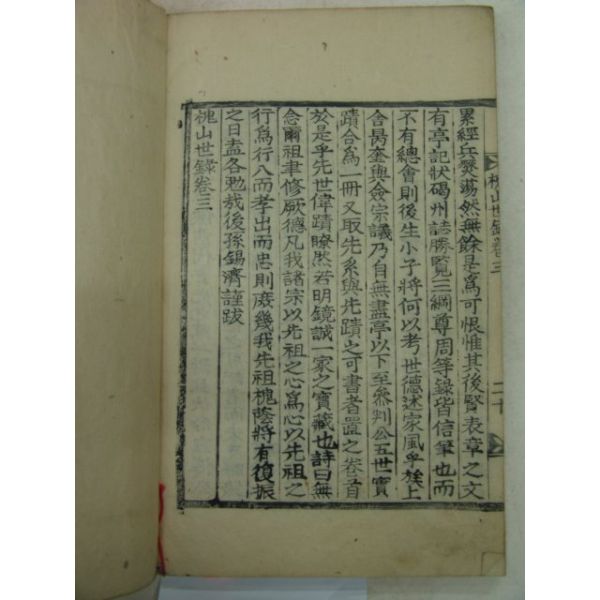 槐山世錄卷三
二十
累經兵燹蕩然無餘是爲可恨惟其後賢表章之文
有亭記狀碣州誌勝覽三綱尊周等錄皆信筆也而
不有總會則後生小子將何以考世德述家風乎族上
舍昺奎與僉宗議乃自無盡亭以下至參判公五世實
蹟合爲一冊又取先系與先蹟之可書者置之卷首
於是乎先世偉蹟瞭然若明鏡誠一家之寶藏也詩曰無
念爾祖聿修厥德凡我諸宗以先祖之心爲心以先祖之
行爲行入而孝出而忠則庶幾我先祖槐蔭將有復振
之日盍各勉哉後孫錫濟謹跋
槐山世錄卷三